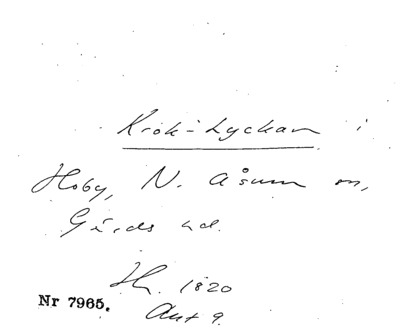 Krok-Lyckan i
Hoby, N. Åsum sn,
Gärds hd.
Hn. 1820
Akt 9.
Nr 7965.